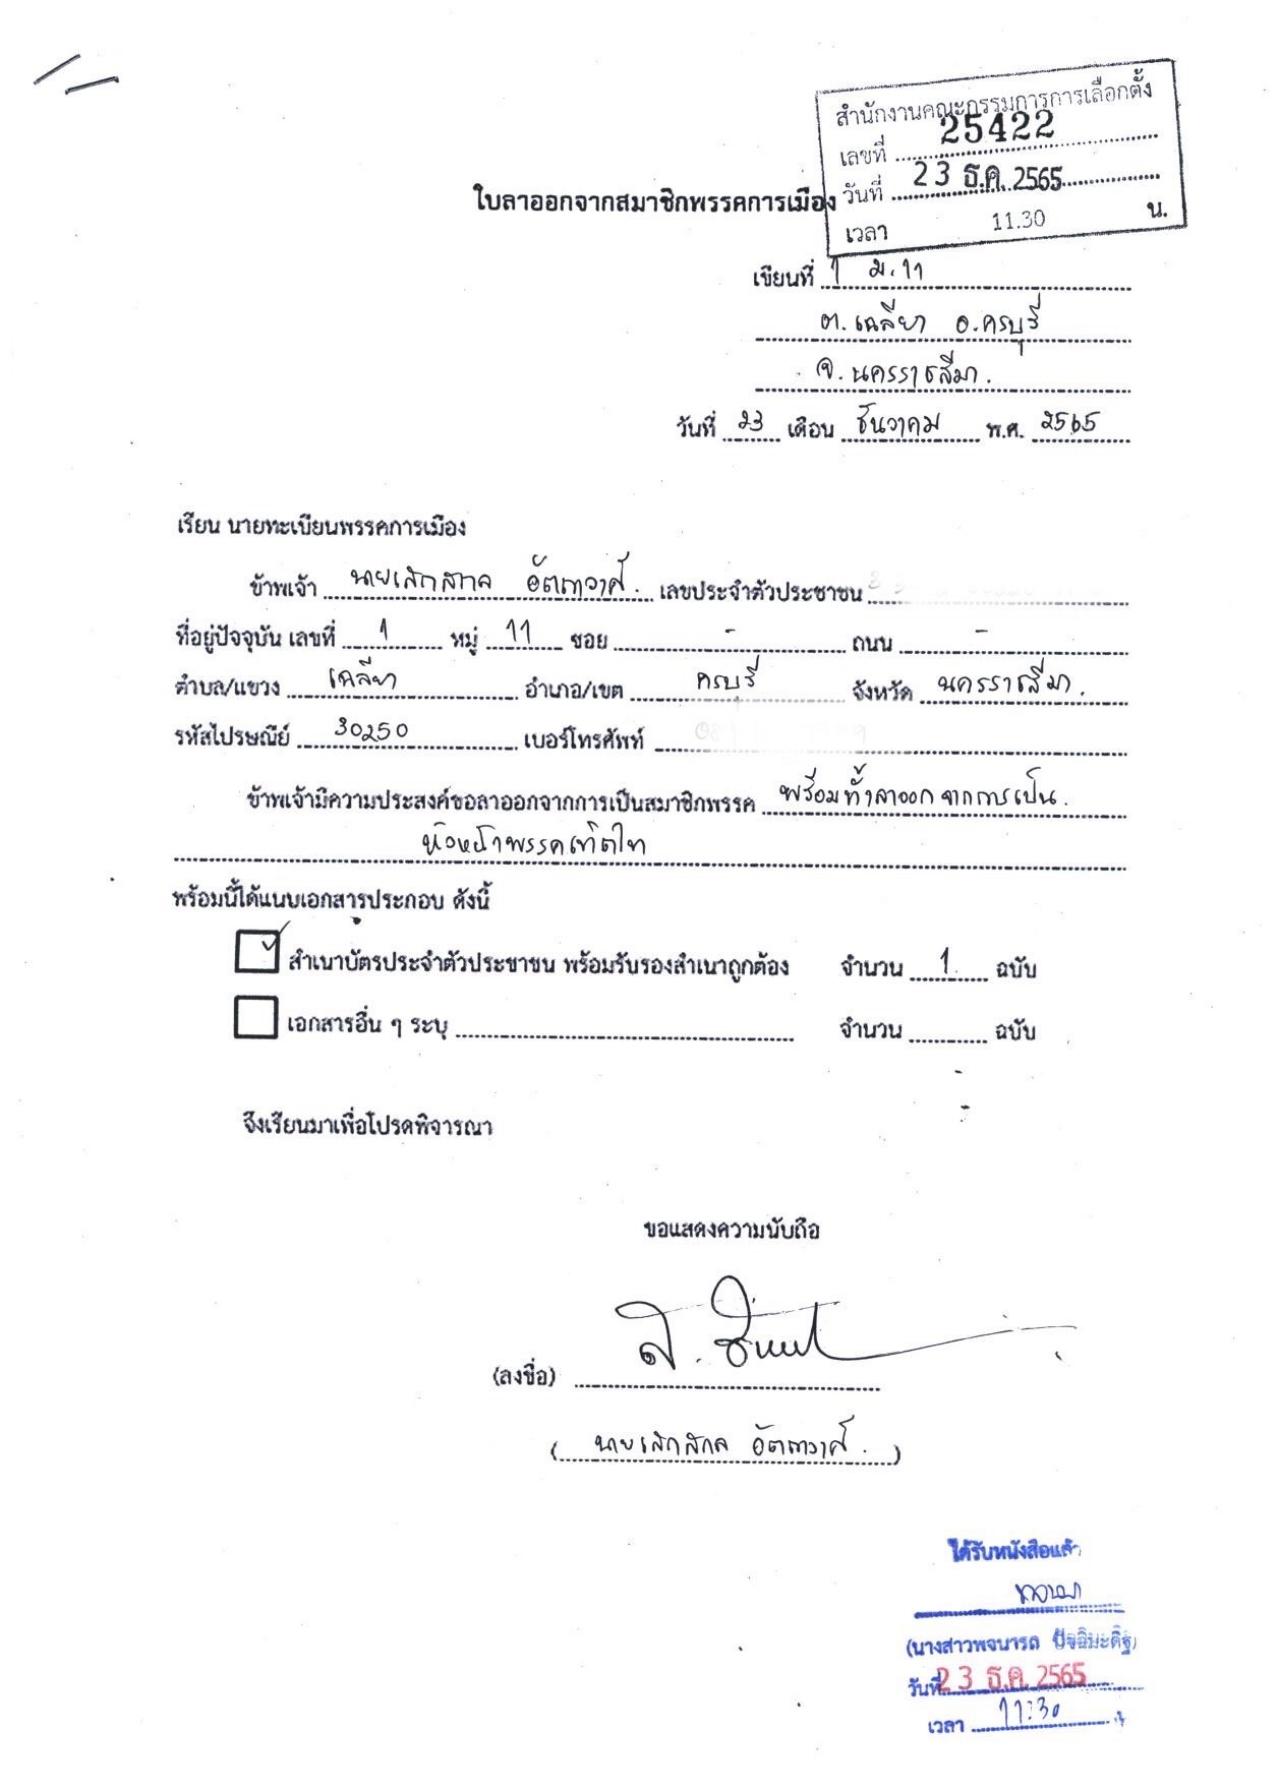 สำนักงานคณะกรรมการการเลือกตั้ง
เลขที่ 25422
วันที่ 23 ธ.ค. 2565
เวลา 11.30 น.
ใบลาออกจากสมาชิกพรรคการเมือง
เขียนที่ 1 ม.11
ต.เฉลียง อ.ครบุรี
จ.นครราชสีมา.
วันที่ 23 เดือน ธันวาคม พ.ศ. 2565
เรียน นายทะเบียนพรรคการเมือง
ข้าพเจ้า นายเสกสกล อัตถาวงศ์. เลขประจำตัวประชาชน
ที่อยู่ปัจจุบัน เลขที่ 1 หมู่ 11 ซอย - ถนน -
ตำบล/แขวง เฉลียง อำเภอ/เขต ครบุรี จังหวัด นครราชสีมา.
รหัสไปรษณีย์ 30250 เบอร์โทรศัพท์
ข้าพเจ้ามีความประสงค์ขอลาออกจากการเป็นสมาชิกพรรค พร้อมทั้งลาออกจากการเป็น.
หัวหน้าพรรคเทิดไท
พร้อมนี้ได้แนบเอกสารประกอบ ดังนี้
✓ สำเนาบัตรประจำตัวประชาชน พร้อมรับรองสำเนาถูกต้อง จำนวน 1 ฉบับ
เอกสารอื่น ๆ ระบุ จำนวน ฉบับ
จึงเรียนมาเพื่อโปรดพิจารณา
ขอแสดงความนับถือ
(ลงชื่อ)
( นายเสกสกล อัตถาวงศ์. )
ได้รับหนังสือแล้ว
(นางสาวพจนารถ
วันที่ 23 ธ.ค. 2565
เวลา 11:30 น.